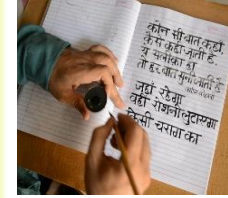 कौन सी बात कहाँ,
कैसे कही जाती है.
ये सलीक़ा हो
तो हर बात सुनी जाती है.
जहाँ रहेगा
वहीं रोशनी लुटाएगा
किसी चराग़ का